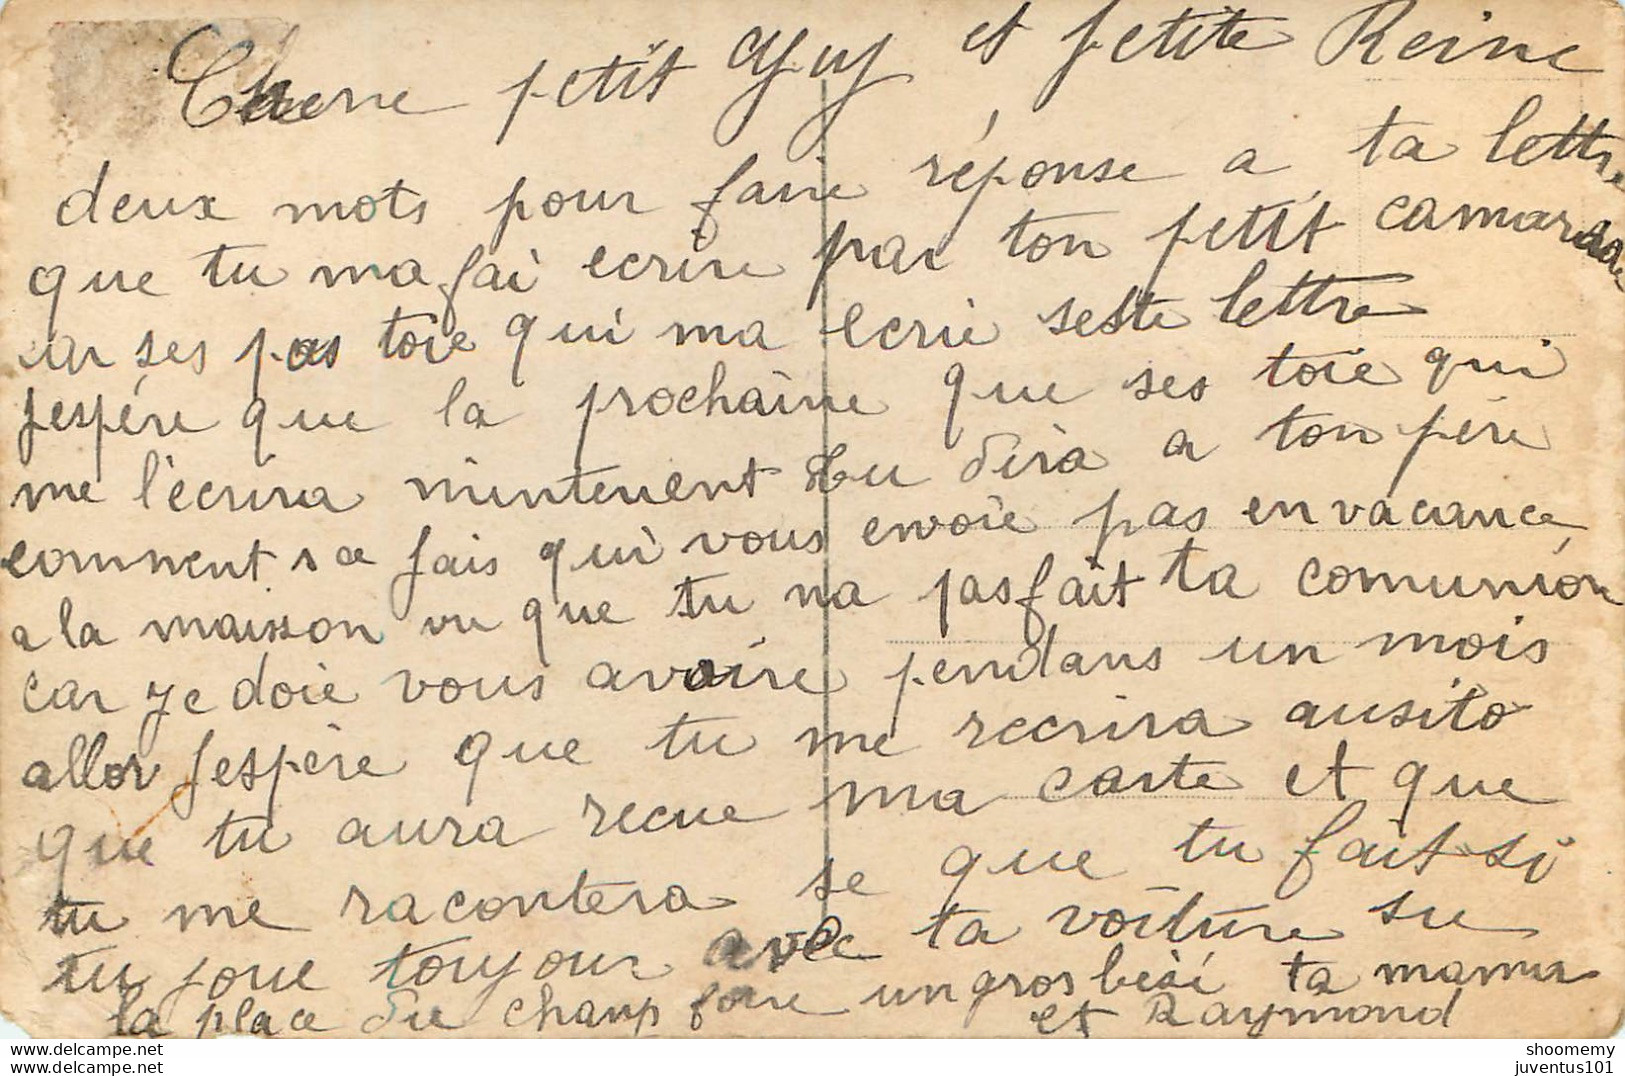 Chere petit Guy et petite Reine
deux mots pour faire réponse a ta lettre
que tu ma fai ecrire par ton petit camarade
car ses pas toie qui ma ecrie seste lettre
jespére que la prochaine que ses toie qui
me l'écrira mintenent tu dira a ton pére
comment sa ce fais qui vous envoie pas en vacance
a la maison vu que tu na pas fait ta comunion
car je doie vous avoire pendans un mois
allor jespère que tu me recrira ausito
que tu aura recue ma carte et que
tu me racontera se que tu fait si
tu joue toujour avec ta voiture su
la place du champ foire un gros bèsé ta maman
et Raymond
shoomemy
juventus101